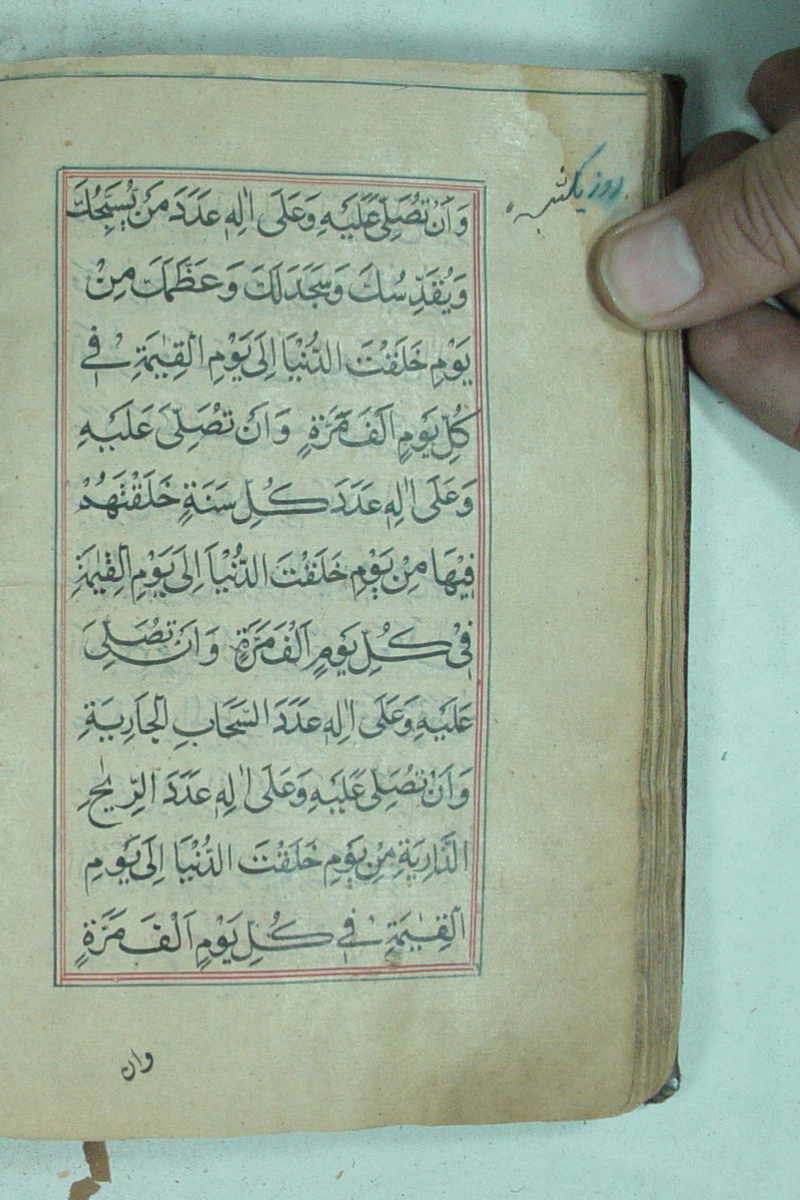 روز یکشنبه
وَاَنْ تُصَلِّیَ عَلَیْهِ وَعَلٰی اٰلِهٖ عَدَدَ مَنْ یُسَبِّحُكَ
وَیُقَدِّسُكَ وَسَجَدَ لَكَ وَعَظَّمَكَ مِنْ
یَوْمِ خَلَقْتَ الدُّنْیَا اِلٰی یَوْمِ الْقِیٰمَةِ فِی
كُلِّ یَوْمٍ اَلْفَ مَرَّةٍ وَاَنْ تُصَلِّیَ عَلَیْهِ
وَعَلٰی اٰلِهٖ عَدَدَ كُلِّ سَنَةٍ خَلَقْتَهُمْ
فِیْهَا مِنْ یَوْمِ خَلَقْتَ الدُّنْیَا اِلٰی یَوْمِ الْقِیٰمَةِ
فِیْ كُلِّ یَوْمٍ اَلْفَ مَرَّةٍ وَاَنْ تُصَلِّیَ
عَلَیْهِ وَعَلٰی اٰلِهٖ عَدَدَ السَّحَابِ الْجَارِیَةِ
وَاَنْ تُصَلِّیَ عَلَیْهِ وَعَلٰی اٰلِهٖ عَدَدَ الرِّیٰحِ
الذَّارِیَةِ مِنْ یَوْمِ خَلَقْتَ الدُّنْیَا اِلٰی یَوْمِ
الْقِیٰمَةِ فِی كُلِّ یَوْمٍ اَلْفَ مَرَّةٍ
وان